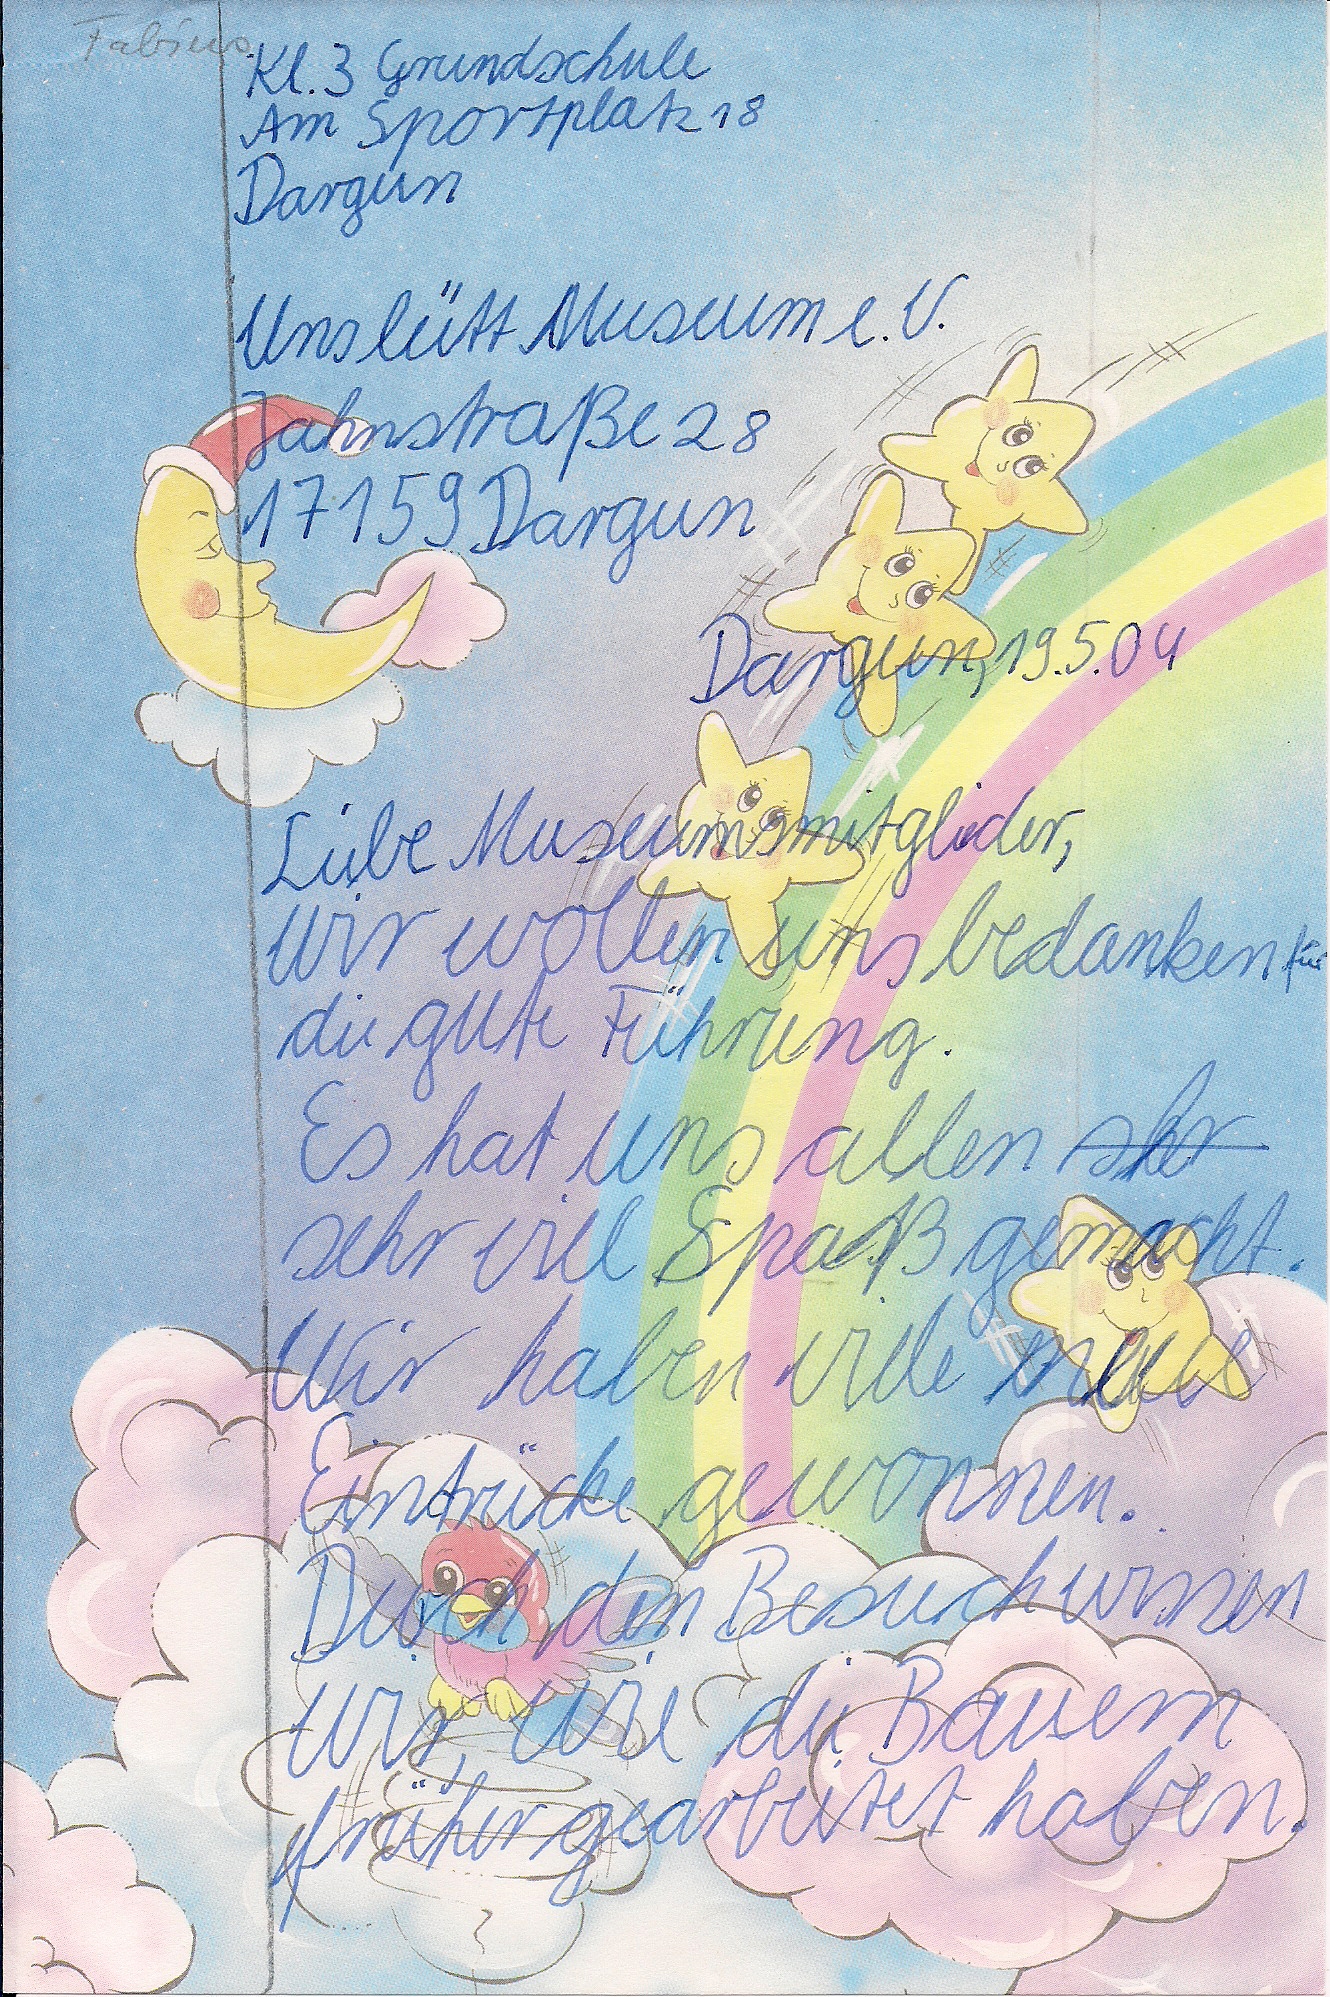 Fabius
Kl. 3 Grundschule
Am Sportplatz 18
Dargun
Uns lütt Museum e. V.
Jahnstraße 28
17159 Dargun
Dargun, 19.5.04
Liebe Museumsmitglieder,
wir wollen uns bedanken für
die gute Führung.
Es hat uns allen sehr
sehr viel Spaß gemacht.
Wir haben viele neue
Eintrücke gewonnen.
Durch den Besuch wissen
wir, wie die Bauern
früher gearbeitet haben.